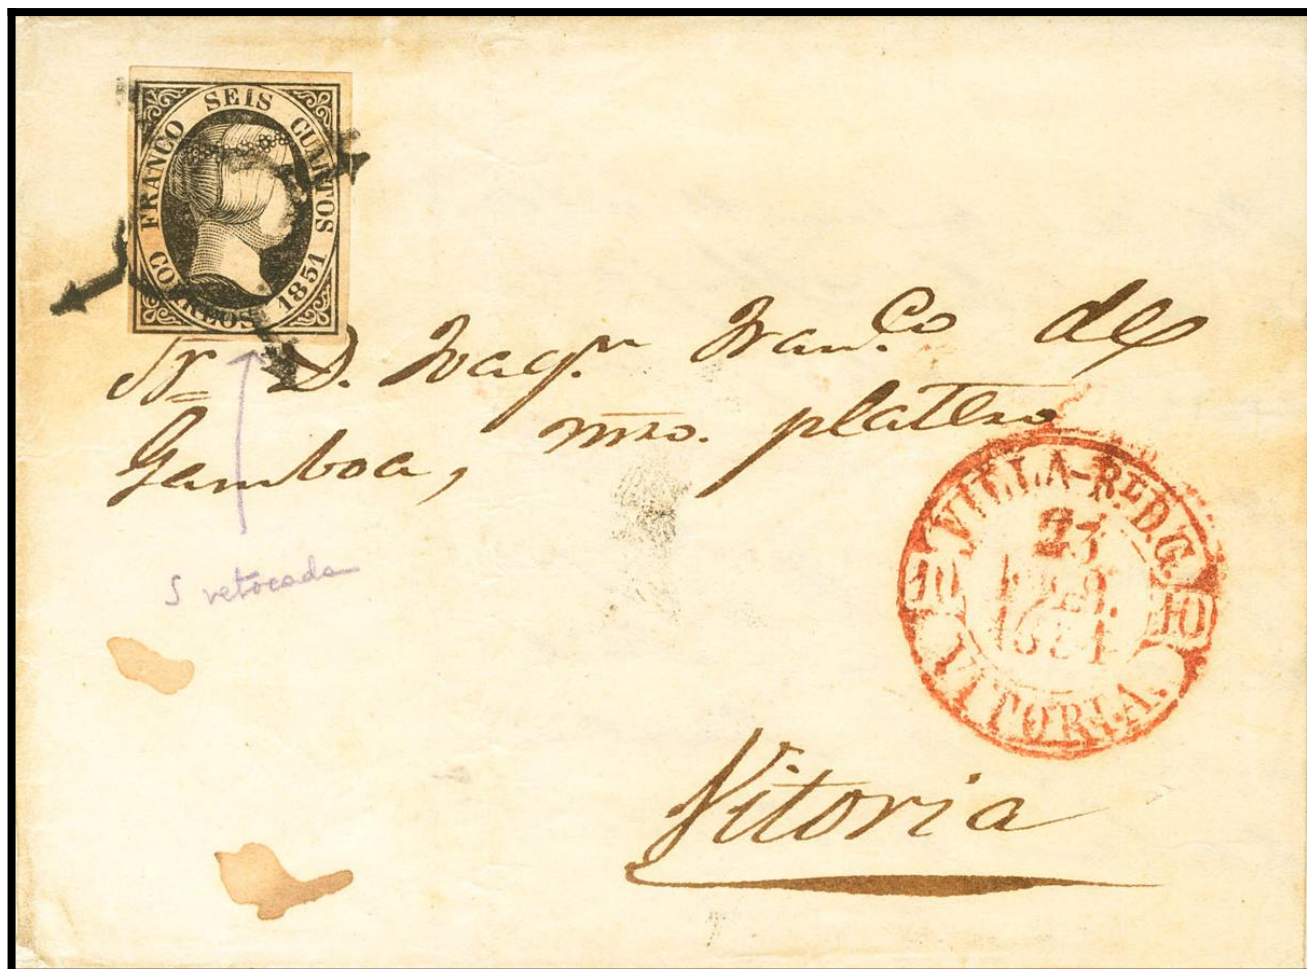 FRANCO SEIS CUARTOS
CORREOS 1851
Sr. D. Joaqn. Franco. de
Gamboa, mro. platero
S retocada
VILLA-RL.D.G.
23
10 10
VITORIA.
Vitoria